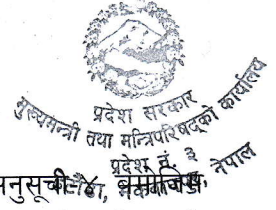 प्रदेश सरकार
मुख्यमन्त्री तथा मन्त्रिपरिषद्को कार्यालय
प्रदेश नं. ३
नेपाल
अनुसूची